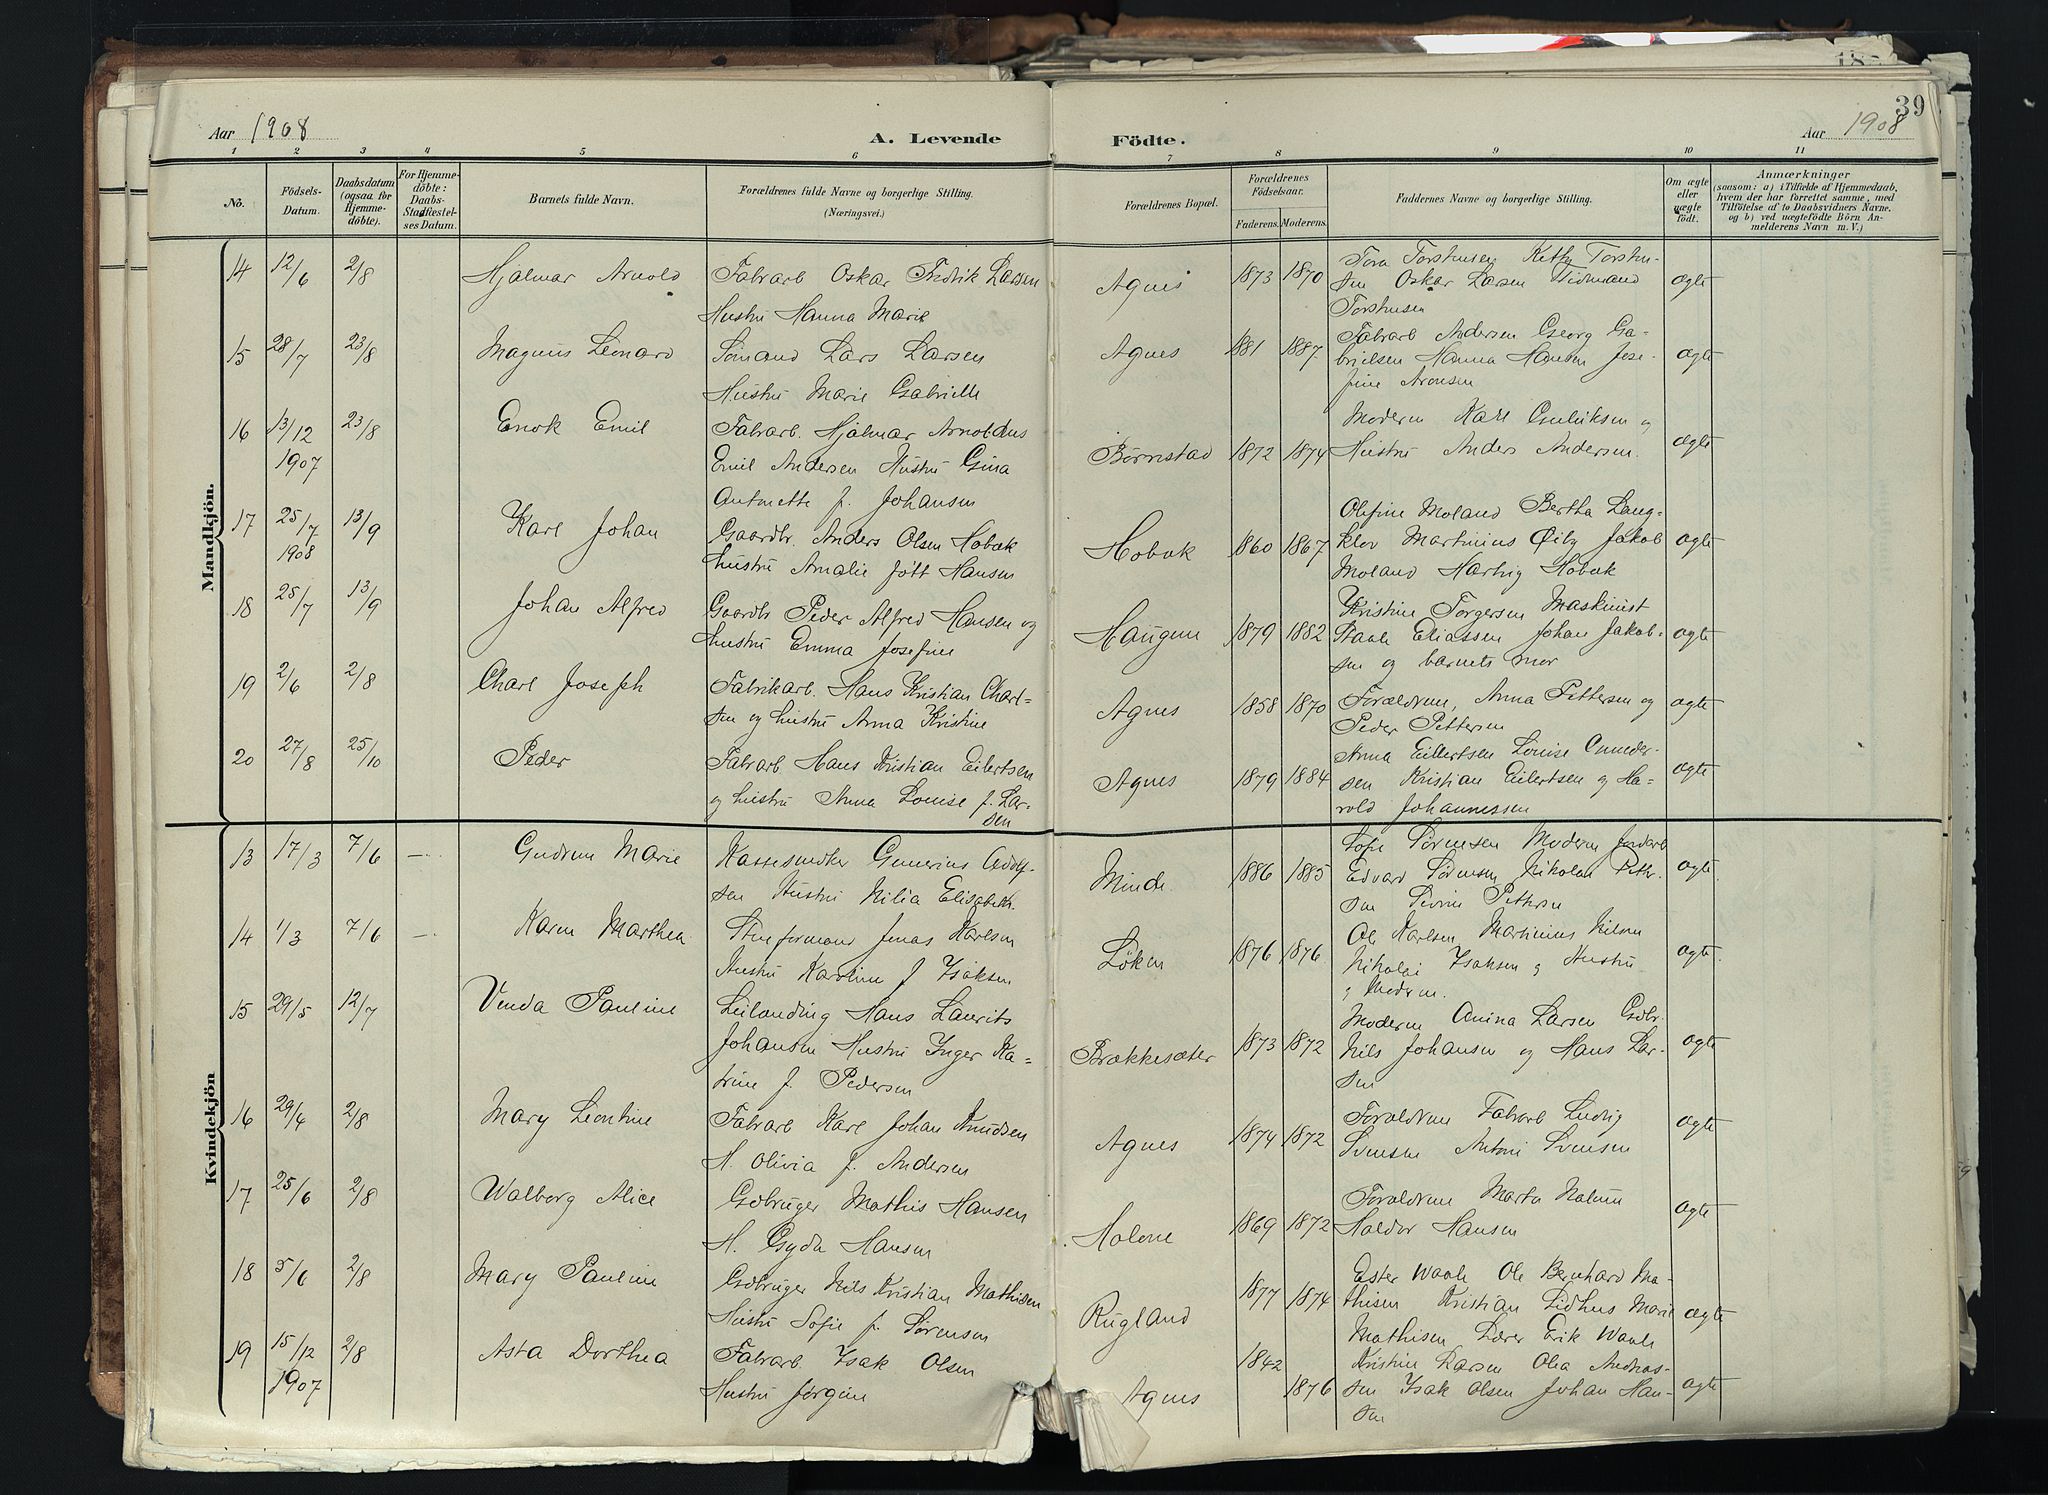 39
Aar 1908
A. Levende
Födte.
Aar 1908
1 2 3 4 5 6 7 8 9 10 11
No.
Födsels-Datum.
Daabsdatum (ogsaa for Hjemme-döbte).
For Hjemme-döbte: Daabs-Stadfæstel-ses Datum.
Barnets fulde Navn.
Forældrenes fulde Navne og borgerlige Stilling. (Næringsvei.)
Forældrenes Bopæl.
Forældrenes Födselsaar.
Faderens. Moderens.
Faddernes Navne og borgerlige Stilling.
Om ægte eller uægte födt.
Anmærkninger
(saasom: a) i Tilfælde af Hjemmedaab, hvem der har forrettet samme, med Tilföielse af to Daabsvidners Navne. og b) ved uægtefödte Börn Anmelderens Navn m. V.)
Mandkjön.
14 12/6 2/8 Hjalmar Arnold Fabrarb Oskar Fredrik Larsen
Hustru Hanna Marie
Agnes 1873 1870 Tora Torstensen Kitty Torsten-
sen Oskar Larsen Tidemand
Torstensen
ægte
15 28/7 23/8 Magnus Leonard Sömand Lars Larsen
Hustru Marie Gabrielle
Agnes 1881 1887 Fabrarb Andersen Georg Ga-
brielsen Hanna Hansen Jose-
fine Aronsen
ægte
16 13/12 1907 23/8 Enok Emil Fabrarb. Hjalmar Arnoldus
Emil Andersen Hustru Gina
Antonette f. Johansen
Börnstad 1872 1874 Moderen Karl Gulliksen og
Hustru Anders Andersen.
ægte
17 25/7 1908 13/9 Karl Johan Gaardbr. Anders Olsen Hobæk
hustru Amalie født Hansen
Hobæk 1860 1867 Olefine Moland Bertha Lang-
klev Martinius Øiby Jakob
Moland Hartvig Hobæk
ægte
18 25/7 13/9 Johan Alfred Gaardbr Peder Alfred Hansen og
hustru Emma Josefine
Haugen 1879 1882 Kristine Torgersen Maskinist
Paale Eliassen Johan Jakob-
sen og barnets mor
ægte
19 2/6 2/8 Charl Joseph Fabrikarb. Hans Kristian Charl-
sen og hustru Anna Kristine
Agnes 1858 1870 Forældrene, Anna Pettersen og
Peder Pettersen
ægte
20 27/8 25/10 Peder Fabrarb Hans Kristian Eilertsen
og hustru Anna Louise f. Lar-
sen
Agnes 1879 1884 Anna Eilertsen Louise
sen Kristian Eilertsen og Ha-
rold Johannessen
ægte
Kvindekjön
13 17/3 7/6 —. Gudrun Marie Kassesmöker Gunerius Adolf-
sen Hustru Nilia Elisabeth.
Minde. 1886 1885 Sofie Sörensen Moderen Jordarb
Edvard Sörensen Nikolai Peter-
sen Sevrine Pettersen
ægte.
14 1/3 7/6 —. Karen Marthea Stenformand Jonas Karlsen
Hustru Karoline f Isaksen
Löken 1876 1876 Ole Karlsen Martinius Nilsen
Nikolai Isaksen og Hustru
og Moderen.
ægte.
15 29/5 12/7 Venda Pauline Leilending Hans Laurits
Johansen Hustru Inger Ka-
trine f. Pedersen
Brækkesæter 1873 1872 Moderen Anina Larsen Gdbr.
Nils Johansen og Hans Lar-
sen
ægte
16 29/4 2/8 Mary Leontine Fabrarb Karl Johan Knudsen
H. Olivia f. Andersen
Agnes 1874 1872 Forældrene Fabrarb Ludvig
Svensen Antoni Svensen
ægte
17 25/6 2/8 Walborg Alice Gdbruger Mathis Hansen
H. Gyda Hansen
Holone 1869 1872 Forældrene Marta Nalum
Haldor Hansen
ægte
18 5/6 2/8 Mary Pauline Gdbruger Nils Kristian Mathisen
Hustru Sofie f. Sörensen
Rugland 1877 1874 Ester Waale Ole Bernhard Ma-
thisen Kristian Lidhus Marie
Mathisen Lærer Erik Waale
ægte
19 15/12 1907 2/8 Asta Dorthea Fabrarb. Isak Olsen
Hustru Jörgine
Agnes 1842 1876 Kristine Larsen Olea Andreas-
sen Isak Olsen Johan Han-
sen
ægte